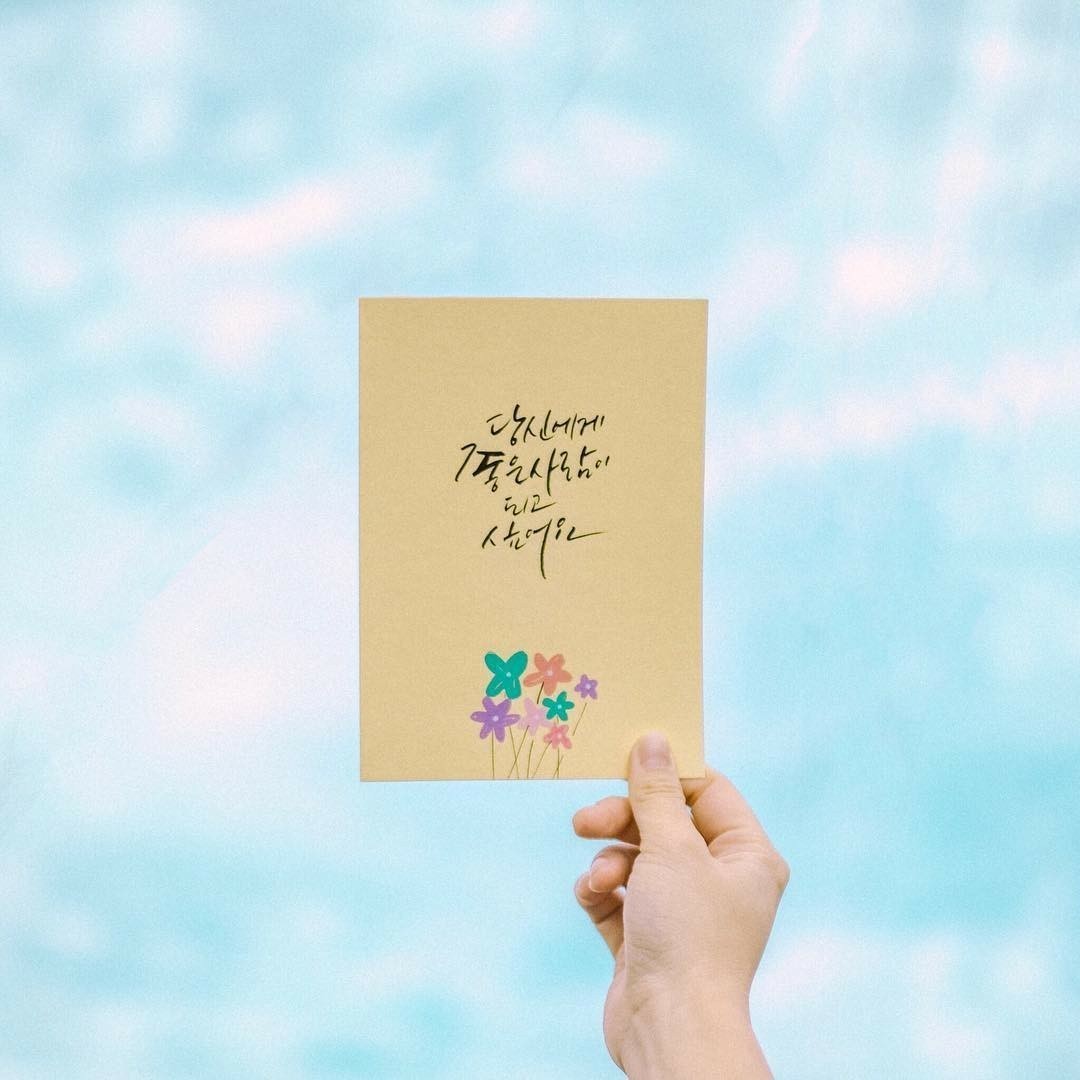 당신에게
좋은사람이
되고
싶어요